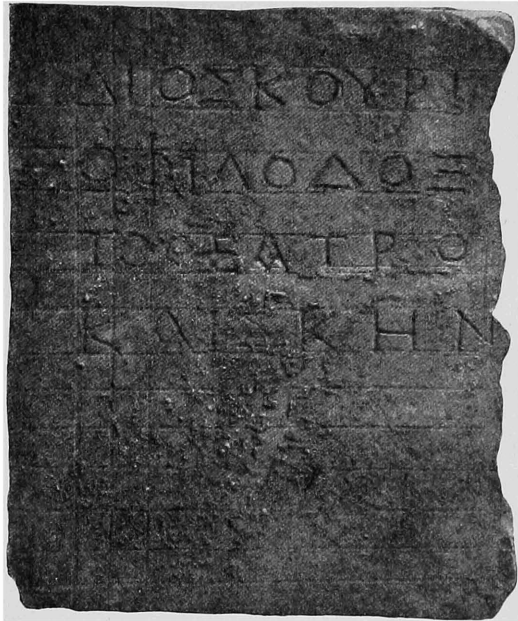 ΔΙΟΣΚΟΥΡΙ
ΩΦΙΛΟΔΟΞ
ΤΟΥΘΕΑΤΡΟ
ΚΑΙΣΚΗΝ